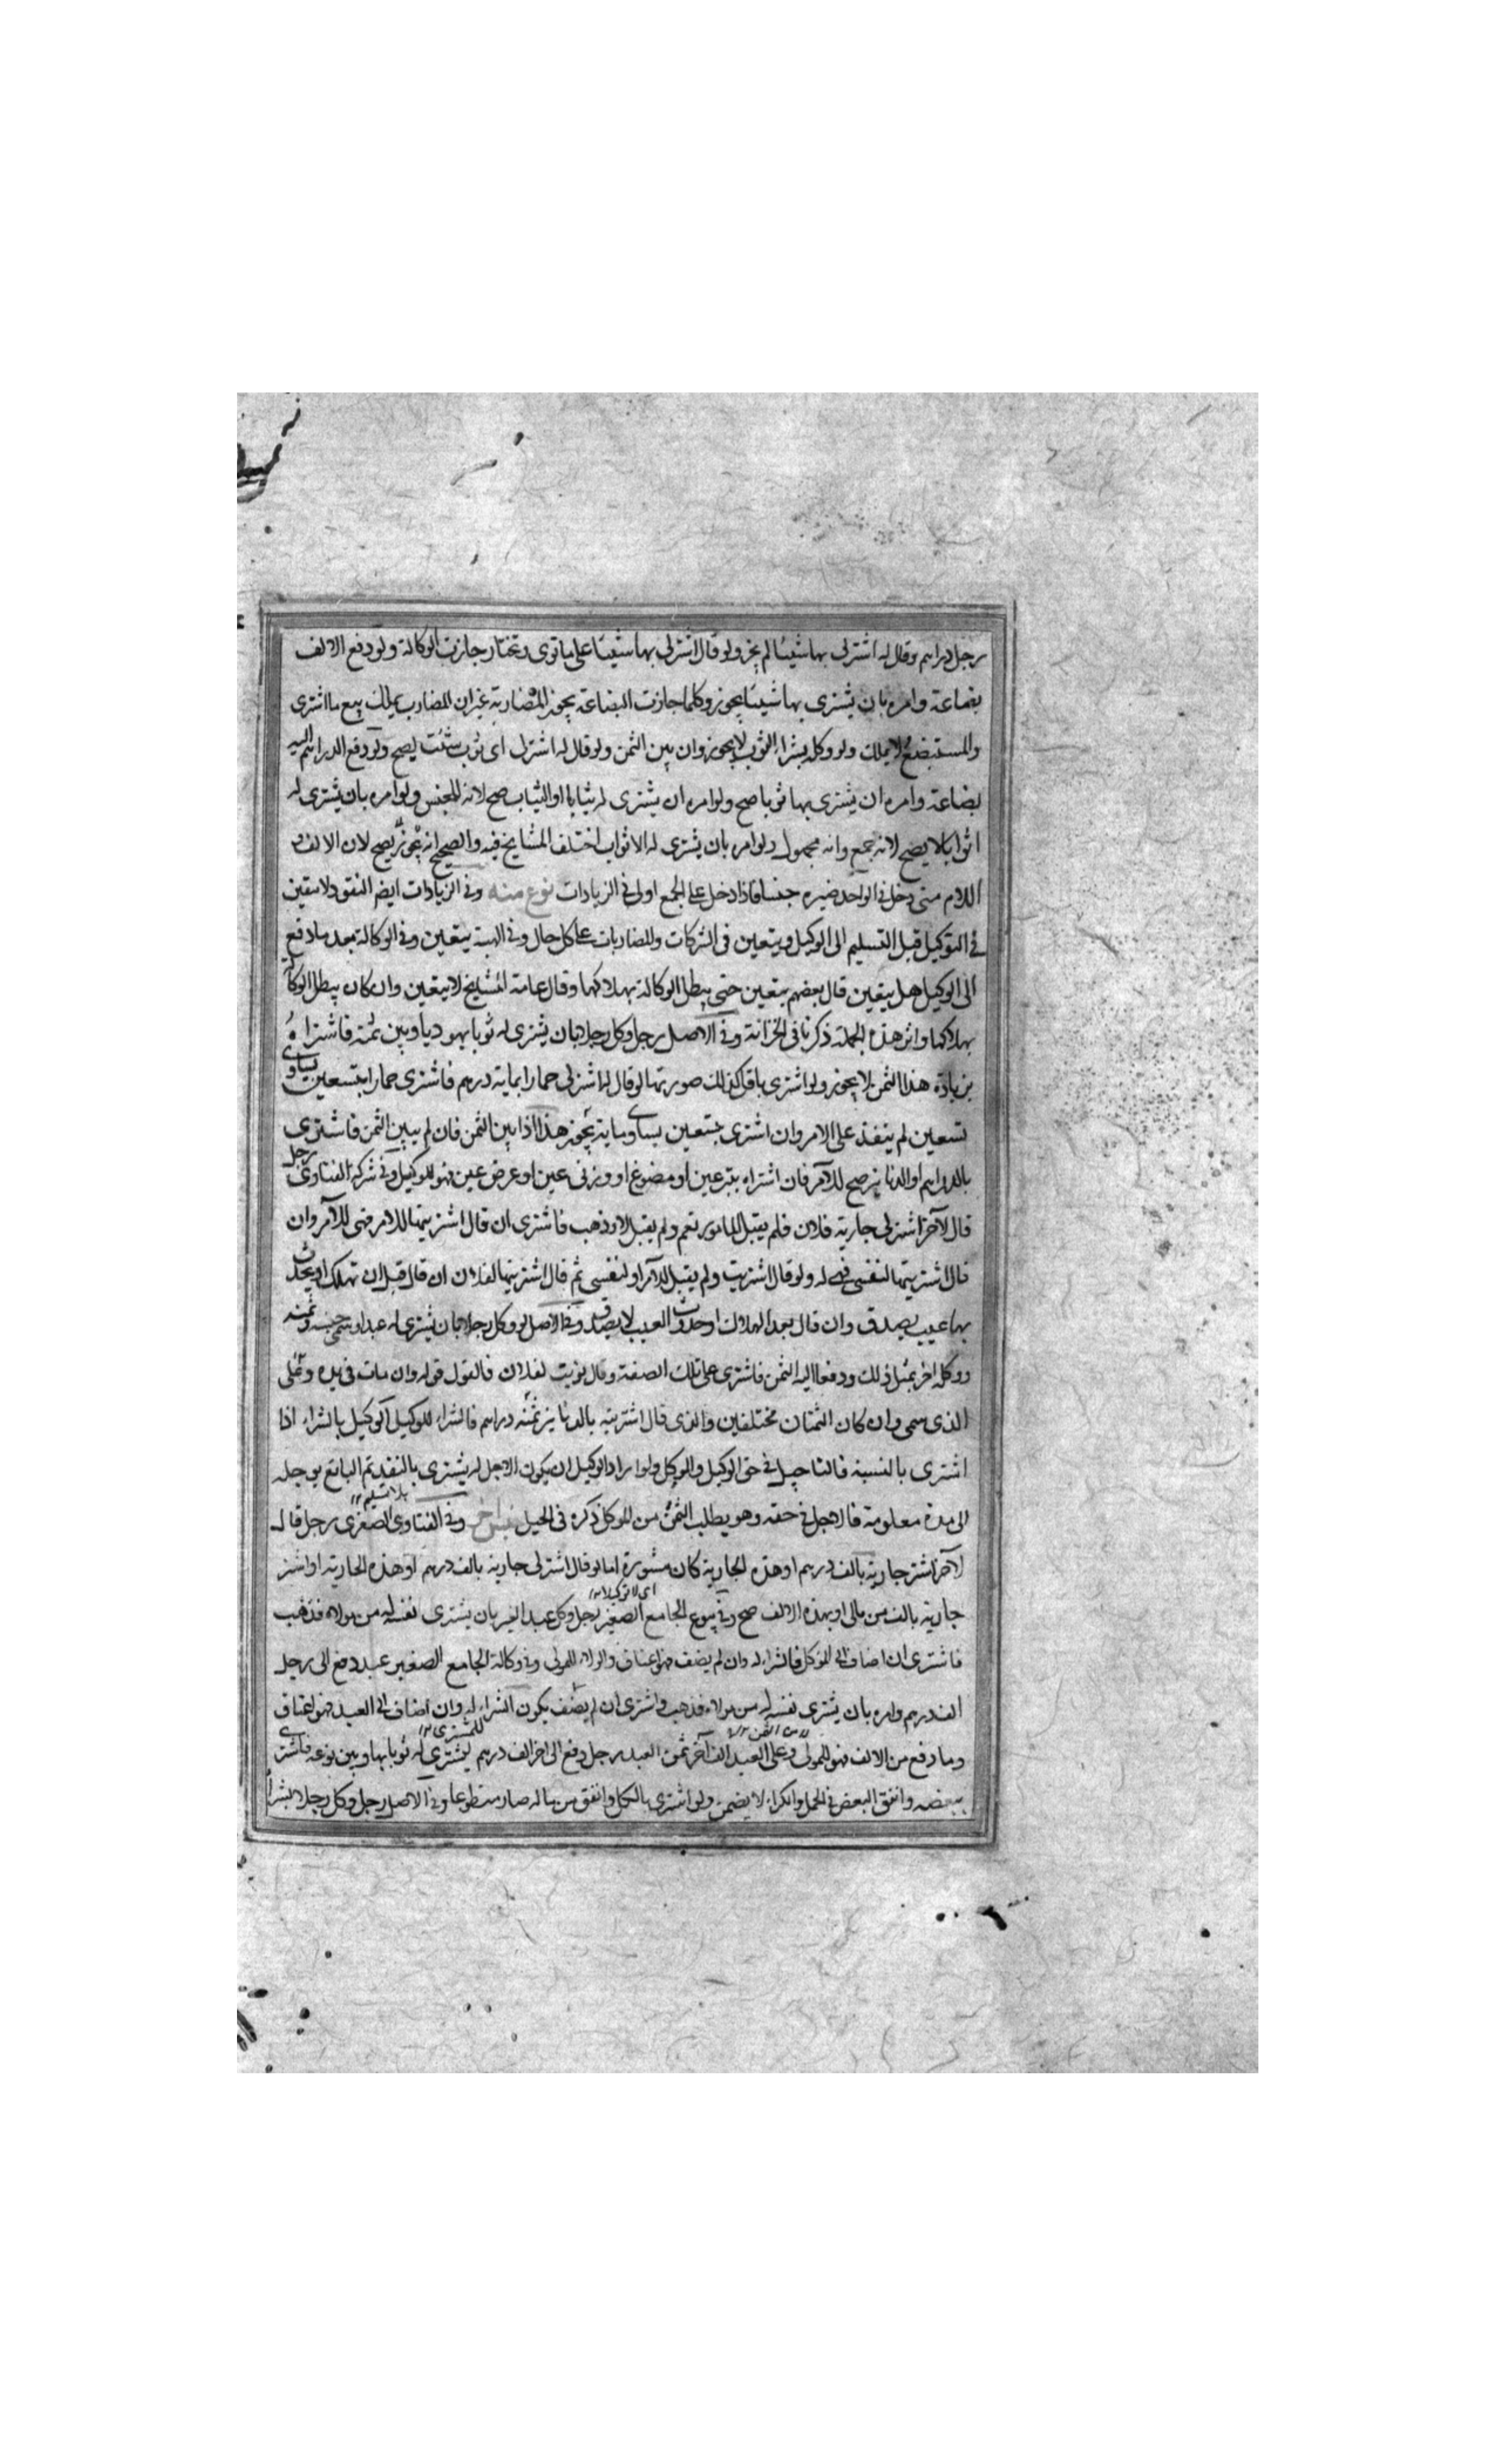 رجل دراهم وقال له اشتر لى بها شيئا لم يجز ولو قال اشتر لى بها شيئا على ما توى وتختار جازت الوكالة ولو دفع الالف
بضاعة وامره بان يشترى بها شيئا يجوز وكلما جازت البضاعة يجوز المضاربة غير ان المضارب يملك بيع ما اشترى
والمستبضع لا يملك ولو وكله بشراء الثوب لا يجوز وان بين الثمن ولو قال له اشتر لى اى ثوب شئت يصح ولو دفع الدراهم اليه
بضاعة وامره ان يشترى بها ثوبا صح ولو امره ان يشترى له ثيابا او الثياب صح لانه للجنس ولو امره بان يشترى له
اثوابا لا يصح لانه جمع وانه مجهول ولو امره بان يشترى له الاثواب اختلف المشايخ فيه والصحيح انه يصح لان الالف و
اللام متى دخل فى الواحد صيره جنسا فاذا دخل على الجمع اولى فى الزيادات نوع منه وفى الزيادات ايضا النقود لا يتعين
فى التوكيل قبل التسليم الى الوكيل ويتعين فى الشركات والمضاربات على كل حال وفى الهبة يتعين وفى الوكالة بعد ما دفع
الى الوكيل هل يتعين قال بعضهم يتعين حتى يبطل الوكالة بهلاكها وقال عامة المشايخ لا يتعين وان كان يبطل الوكالة
بهلاكها واثر هذه الجملة ذكرنا فى الخزانة وفى الاصل رجل وكل رجلا بان يشترى له ثوبا يهوديا وبين ثمنه فاشتراه
بزيادة هذا الثمن لا يجوز ولو اشترى باقل كذلك صورتها لو قال له اشتر لى حمارا بماية درهم فاشترى حمارا بتسعين يساوى
تسعين لم ينفذ على الامر وان اشترى بتسعين يساوى ماية يجوز هذا اذا بين الثمن فان لم يبين الثمن فاشترى
بالدراهم او الدنانير صح للآمر فان اشتراه بتبر عين او مصوغ او وزنى عين او عرض عين فهو للوكيل وفى شركة الفتاوى رجل
قال لآخر اشتر لى جارية فلان فلم يقبل المامور نعم ولم يقبل لا وذهب فاشترى ان قال اشتريتها للامر فهى للآمر وان
قال اشتريتها لنفسى فهى له ولو قال اشتريت ولم يقبل للآمر او لنفسى ثم قال اشتريتها لفلان ان قال قبل ان تهلك او يحدث
بها عيب يصدق وان قال بعد الهلاك او حدوث العيب لا يصدق وفى الاصل لو وكل رجلا بان يشترى له عبدا وسمى جنسه وثمنه
ووكله اخر بمثل ذلك ودفعا اليه الثمن فاشترى على تلك الصفة وقال نويت لفلان فالقول قوله وان مات فى يده وعلى
الذى سمى وان كان الثمنان مختلفين والذى قال اشتريته بالدنانير ثمنه دراهم فالشراء للوكيل الوكيل بالشراء اذا
اشترى بالنسية فالتاجيل فى حق الوكيل والموكل ولو اراد الوكيل ان يكون الاجل له يشترى بالنقد ثم البائع يوجله
الى مدة معلومة فالاجل فى حقه وهو يطلب الثمن من الموكل ذكره فى الحيل وفى الفتاوى الصغرى رجل قال
لآخر اشتر جارية بالف درهم او هذه الجارية كان مشورة اما لو قال اشتر لى جارية بالف درهم او هذه الجارية او اشتر
جارية بالف من مالى او بهذه الالف صح وفى بيوع الجامع الصغير رجل وكل عبد الغير بان يشترى نفسه له من مولاه فذهب
فاشترى ان اضاف الى الموكل فالشراء له وان لم يضف فهو اعتاق والولاء للمولى وفى وكالة الجامع الصغير عبد دفع الى رجل
الف درهم وامره بان يشترى نفسه له من مولاه فذهب واشترى ان لم يضف يكون الشراء له وان اضاف الى العبد فهو اعتاق
وما دفع من الالف فهو للمولى وعلى العبد الف آخر ثمن العبد رجل دفع الى اخر الف درهم ليشترى له ثوبا بها وبين نوعه فاشترى
ببعضه وانفق البعض فى الحمل والكراء لا يضمن ولو اشترى بالكل وانفق من ماله صار متطوعا وفى الاصل رجل وكل رجلا بشراء